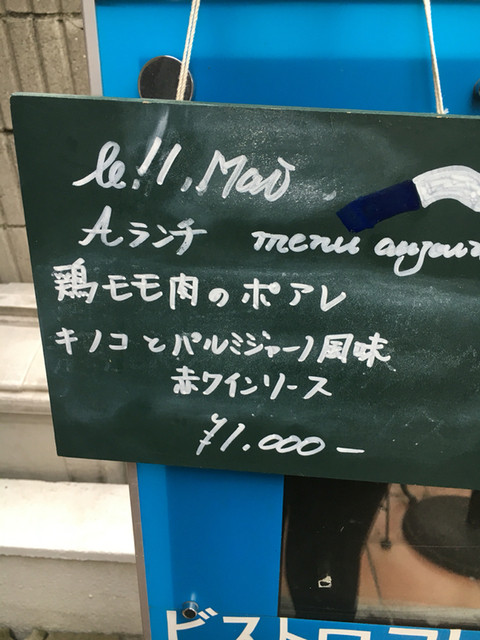 le 11, Mai
Aランチ menu aujour
鶏モモ肉のポアレ
キノコとパルミジャーノ風味
赤ワインソース
¥1.000-
ビストロ